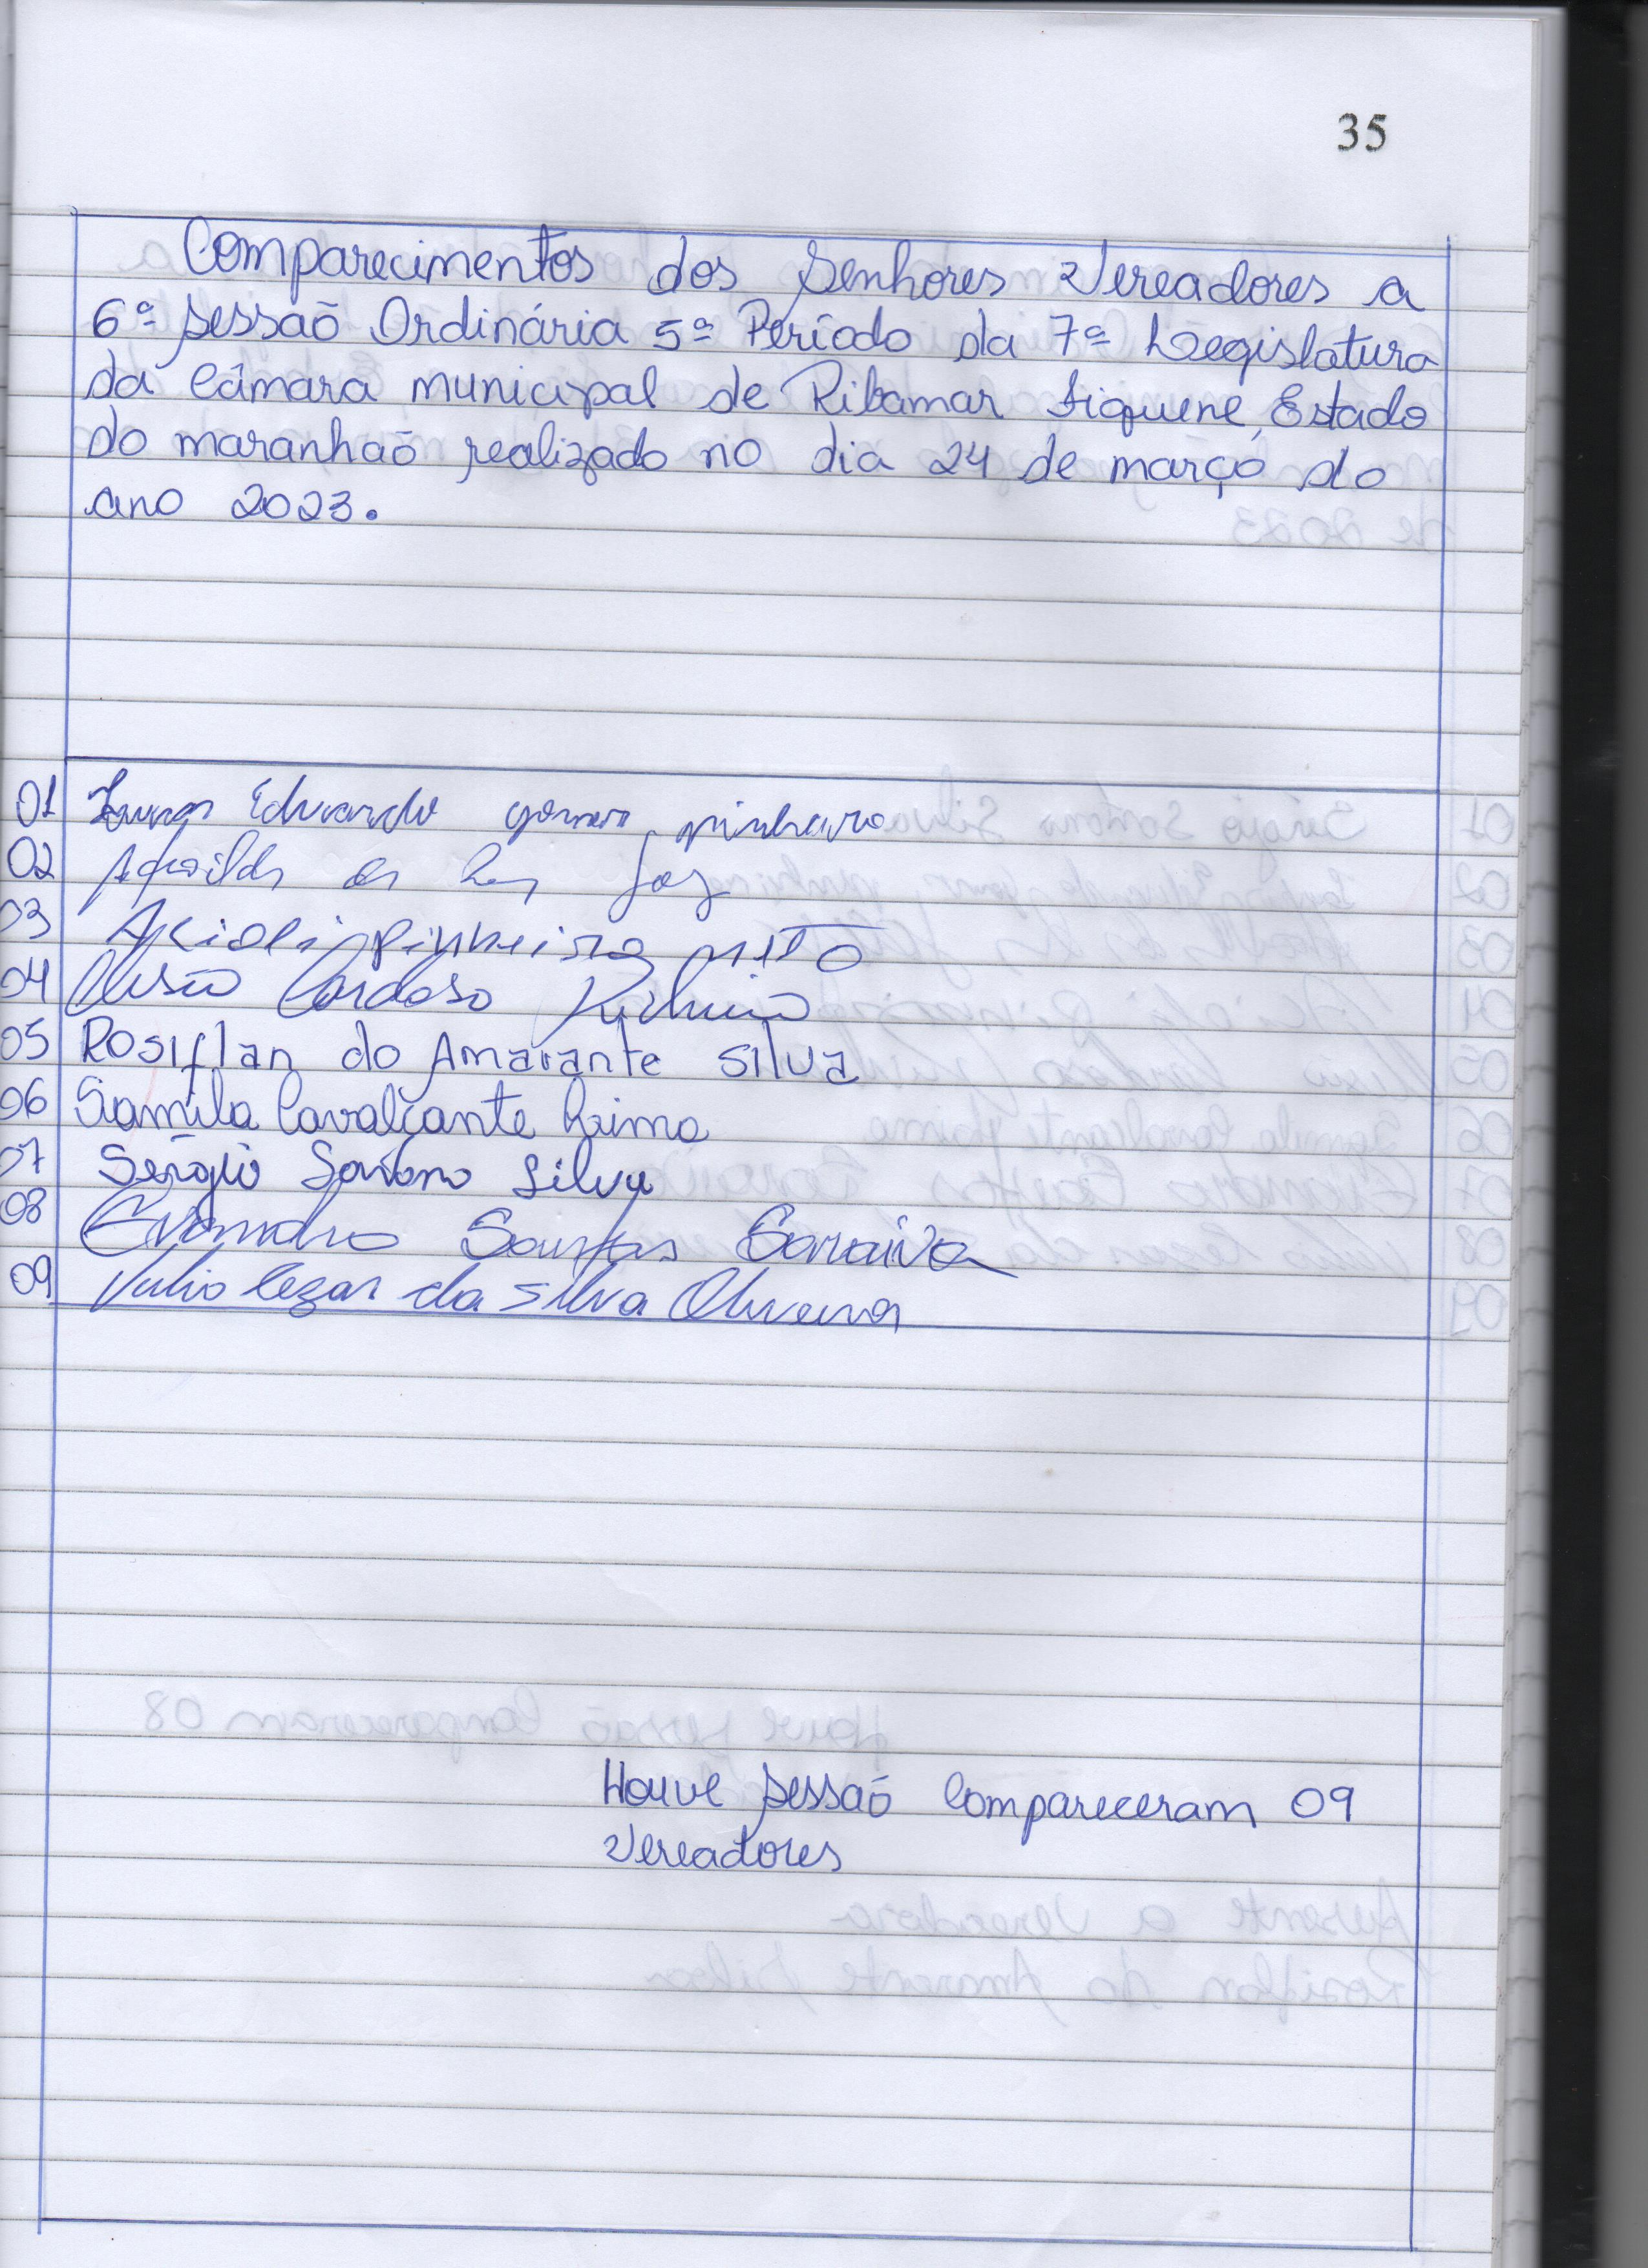 35
Comparecimentos dos Senhores Vereadores a
6ª sessaõ Ordinária 5º Período da 7ª Legislatura
da Câmara municipal de Ribamar Fiquene, Estado
do maranhaõ realizado no dia 24 de março do
ano 2023.
01 Eduardo gomes pinheiro
02
03 Acioli pinheiro neto
04 Cardoso
05 Rosiflan do Amarante Silva
06 Samila Cavalcante Lima
07 Sérgio Silva
08 Evandro Saraiva
09 Julio Cezar da Silva Oliveira
Houve sessaõ Compareceram 09
Vereadores